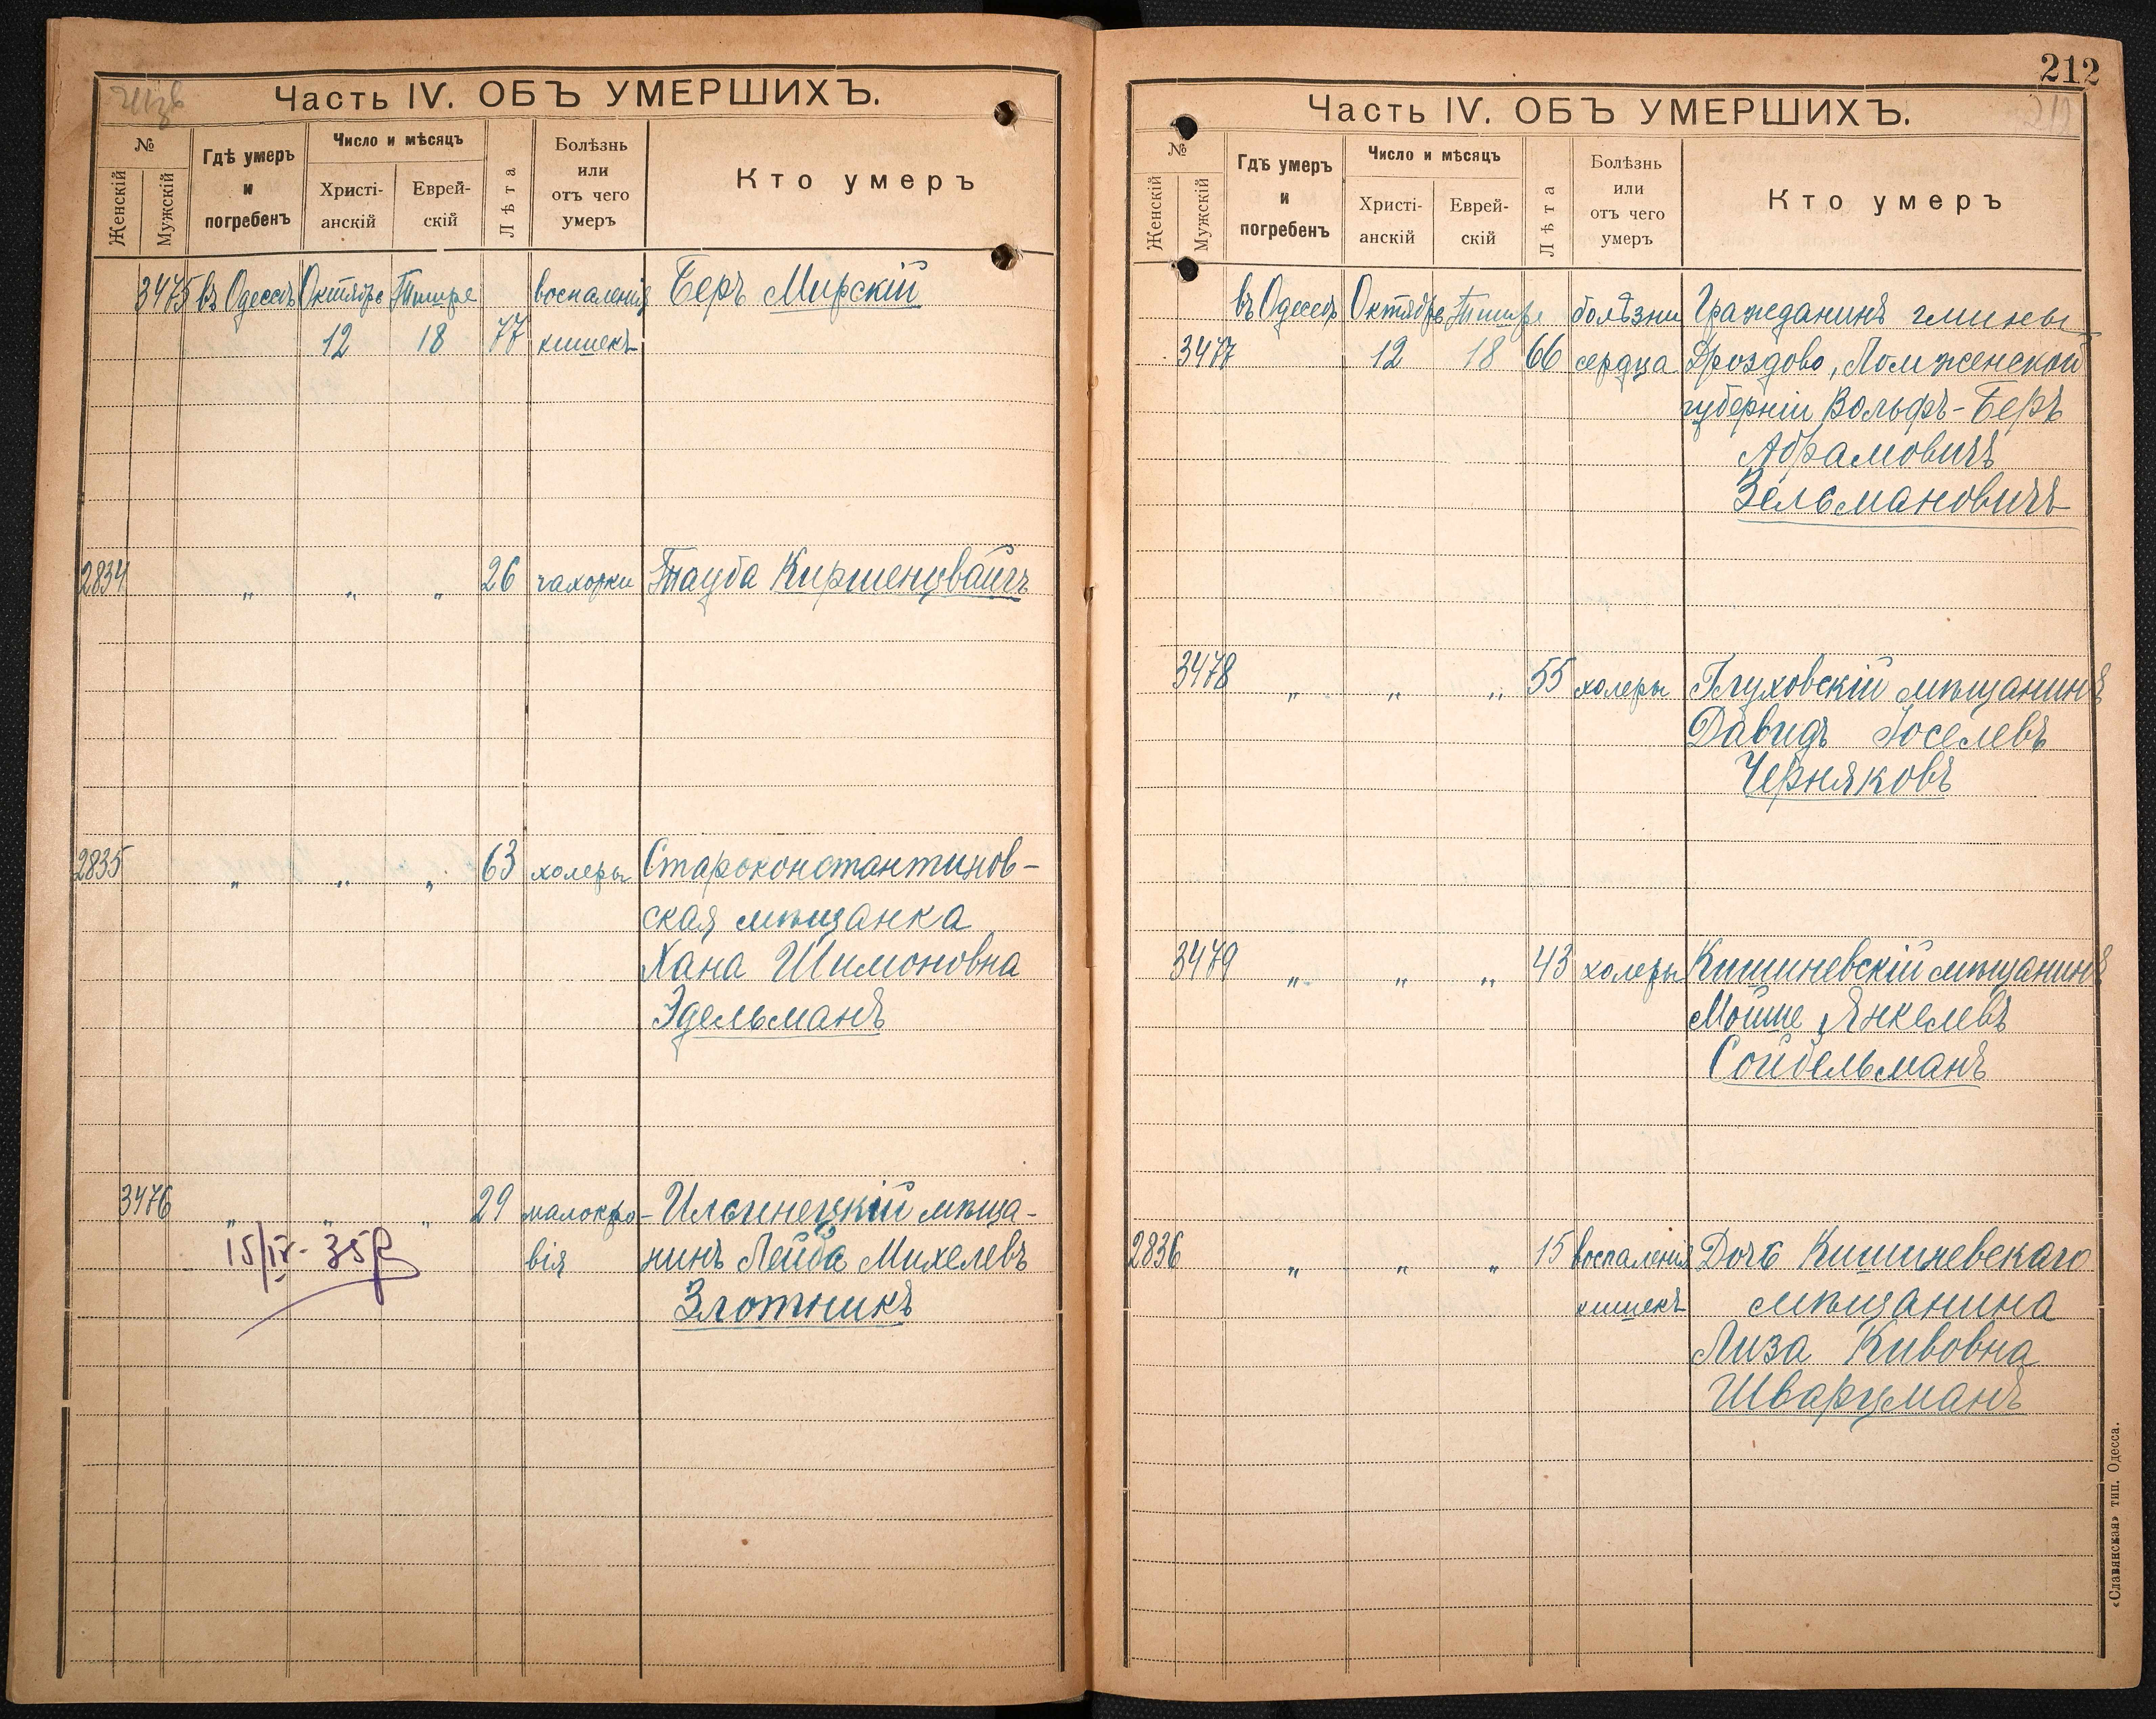 Часть IV. ОБЪ УМЕРШИХЪ.
№
Женскій
Мужскій
Гдѣ умеръ
и
погребенъ
Число и мѣсяцъ
Христі-
анскій
Еврей-
скій
Лѣта
Болѣзнь
или
отъ чего
умеръ
Кто умеръ
3475 въ Одессѣ Октября Тишре воспаленія Беръ Мирскій
12 18 77 кишекъ
2834 " " " 26 чахотки Тауба Киршенцвайгъ
2835 " " " 63 холеры Староконстантинов-
ская мѣщанка
Хана Шимоновна
Эдельманъ
3476 " " " 29 малокро- Ильинецкій мѣща-
вія нинъ Лейба Михелевъ
15/IV-35
Злотникъ
212
212
Часть IV. ОБЪ УМЕРШИХЪ.
№
Женскій
Мужскій
Гдѣ умеръ
и
погребенъ
Число и мѣсяцъ
Христі-
анскій
Еврей-
скій
Лѣта
Болѣзнь
или
отъ чего
умеръ
Кто умеръ
въ Одессѣ Октября Тишре болѣзни Гражданинъ гмины
3477 12 18 66 сердца Дроздово, Ломженской
губерніи Вольфъ-Беръ
Абрамовичъ
Зельмановичъ
3478 " " " 55 холеры Глуховскій мѣщанинъ
Давидъ Іоселевъ
Черняковъ
3479 " " " 43 холеры Кишиневскій мѣщанинъ
Мойше Янкелевъ
Сойбельманъ
2836 " " " 15 воспаленія Дочь Кишиневскаго
кишекъ мѣщанина
Лиза Кивовна
Шварцманъ
«Славянская» тип. Одесса.